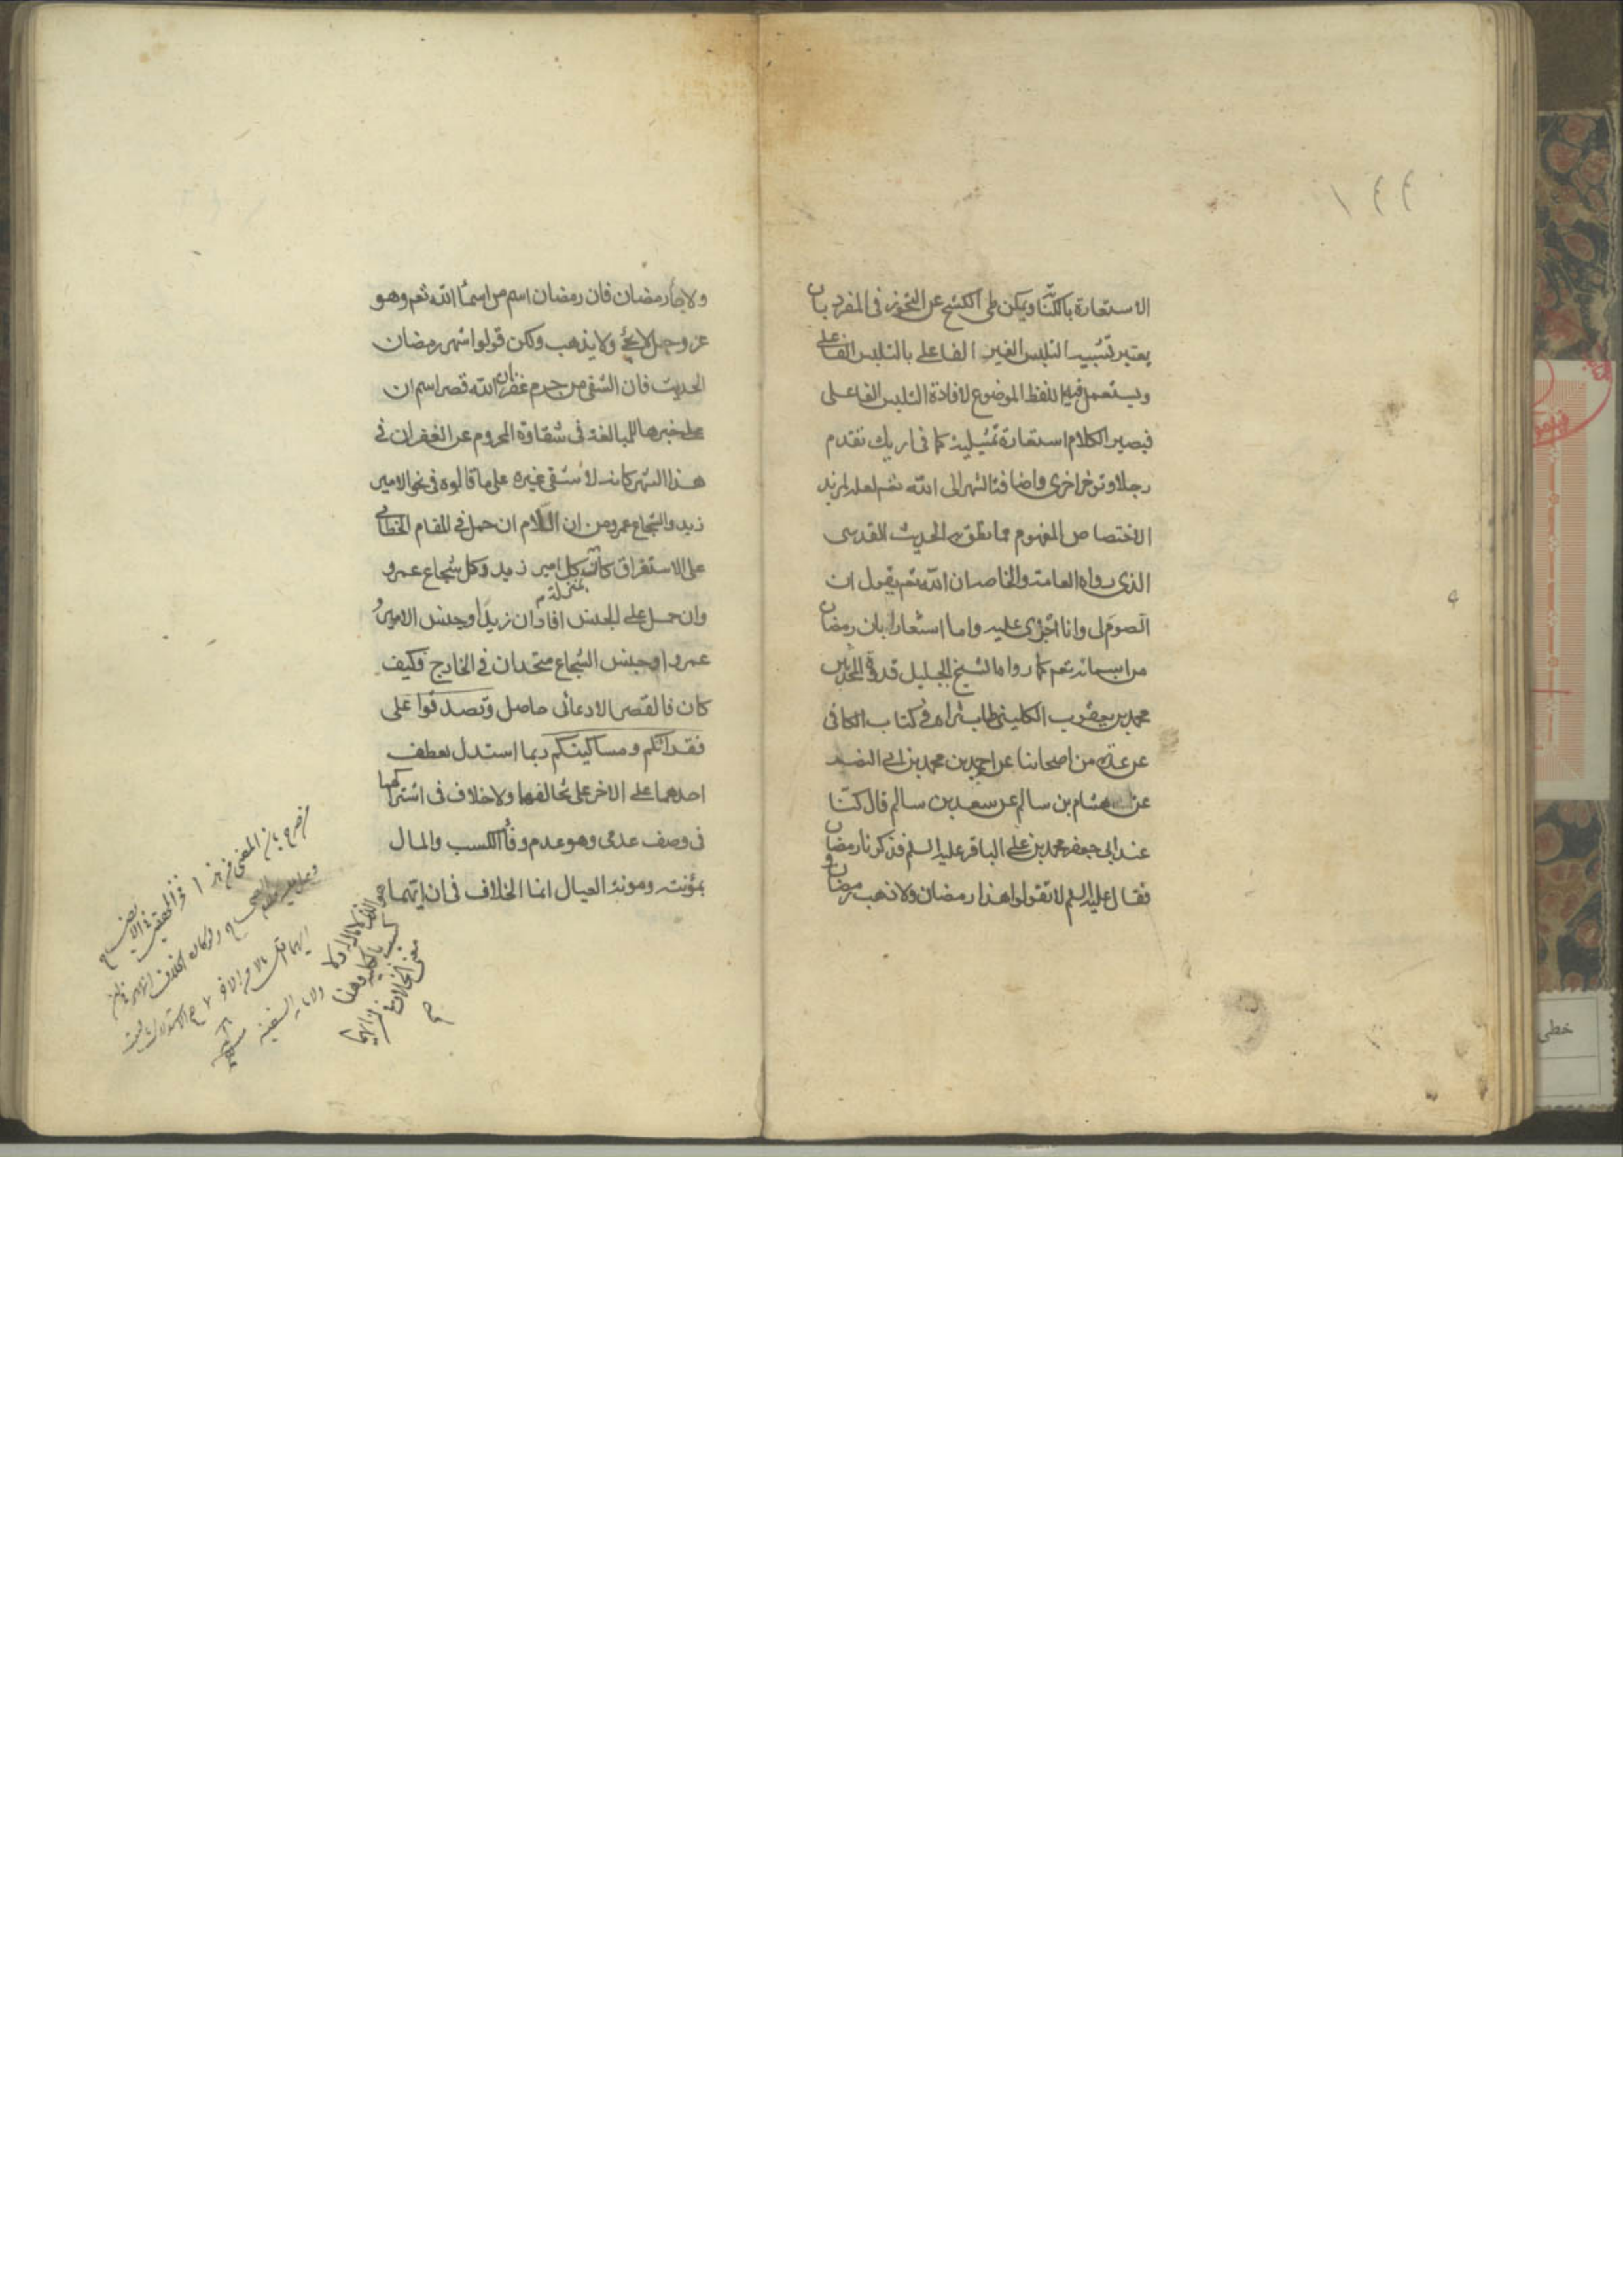 ١٤٤
الاستعارة بالكناية ويمكن طي الكشح عن التجوز في المفرد بان
يعتبر تشبيه التلبس الغير الفاعلي بالتلبس الفاعلي
ويستعمل فيه اللفظ الموضوع لافادة التلبس الفاعلى
فيصير الكلام استعارة تمثيلية كما في اريك تقدم
رجلا وتؤخر اخرى واضافة الشهر الى الله تعم لعله لمزيد
الاختصاص المفهوم مما نطق به الحديث القدسى
الذى رواه العامة والخاصة ان الله تعم يقول ان
الصوم لى وانا اجزى عليه واما اشعارا بان رمضان
من اسمائه تعم كما رواه الشيخ الجليل قدوة المحدثين
محمد بن يعقوب الكليني طاب ثراه في كتاب الكافى
عن عدة من اصحابنا عن احمد بن محمد بن ابى النصر
عن هشام بن سالم عن سعد بن سالم قال كنا
عند ابى جعفر محمد بن على الباقر عليه السلم فذكرنا رمضان
فقال عليه السلم لا تقولوا هذا رمضان ولا ذهب رمضان و
ولا جاء رمضان فان رمضان اسم من اسماء الله تعم وهو
عز وجل لا يجئ ولا يذهب ولكن قولوا شهر رمضان
الحديث فان الشقى من حرم غفران الله قصر اسم ان
على خبرها للمبالغة فى شقاوة المحروم عن الغفران فى
هذا الشهر كانه لا شقى غيره على ما قالوه فى نحو الامير
زيد والشجاع عمرو من ان اللام ان حمل في المقام الخطابى
على الاستغراق كانت بمنزلة كل امير زيد وكل شجاع عمرو
وان حمل على الجنس افاد ان زيدا وجنس الامير و
عمروا وجنس الشجاع متحدان في الخارج وكيف
كان فالقصر الادعائى حاصل وتصدقوا على
فقرائكم ومساكينكم ربما استدل بعطف
احدهما على الاخر على تخالفهما ولا خلاف فى اشتراكهما
فى وصف عدمى وهو عدم وفاء الكسب والمال
بمؤنته ومونة العيال انما الخلاف فى ان ايهما